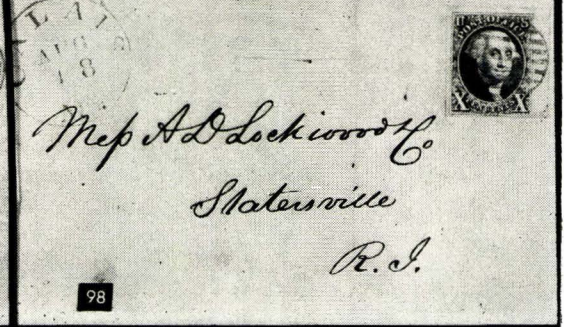 CALAIS
AUG
18
POST OFFICE
X X
Mess A D Lockwood & Co
Slatersville
R. I.
98